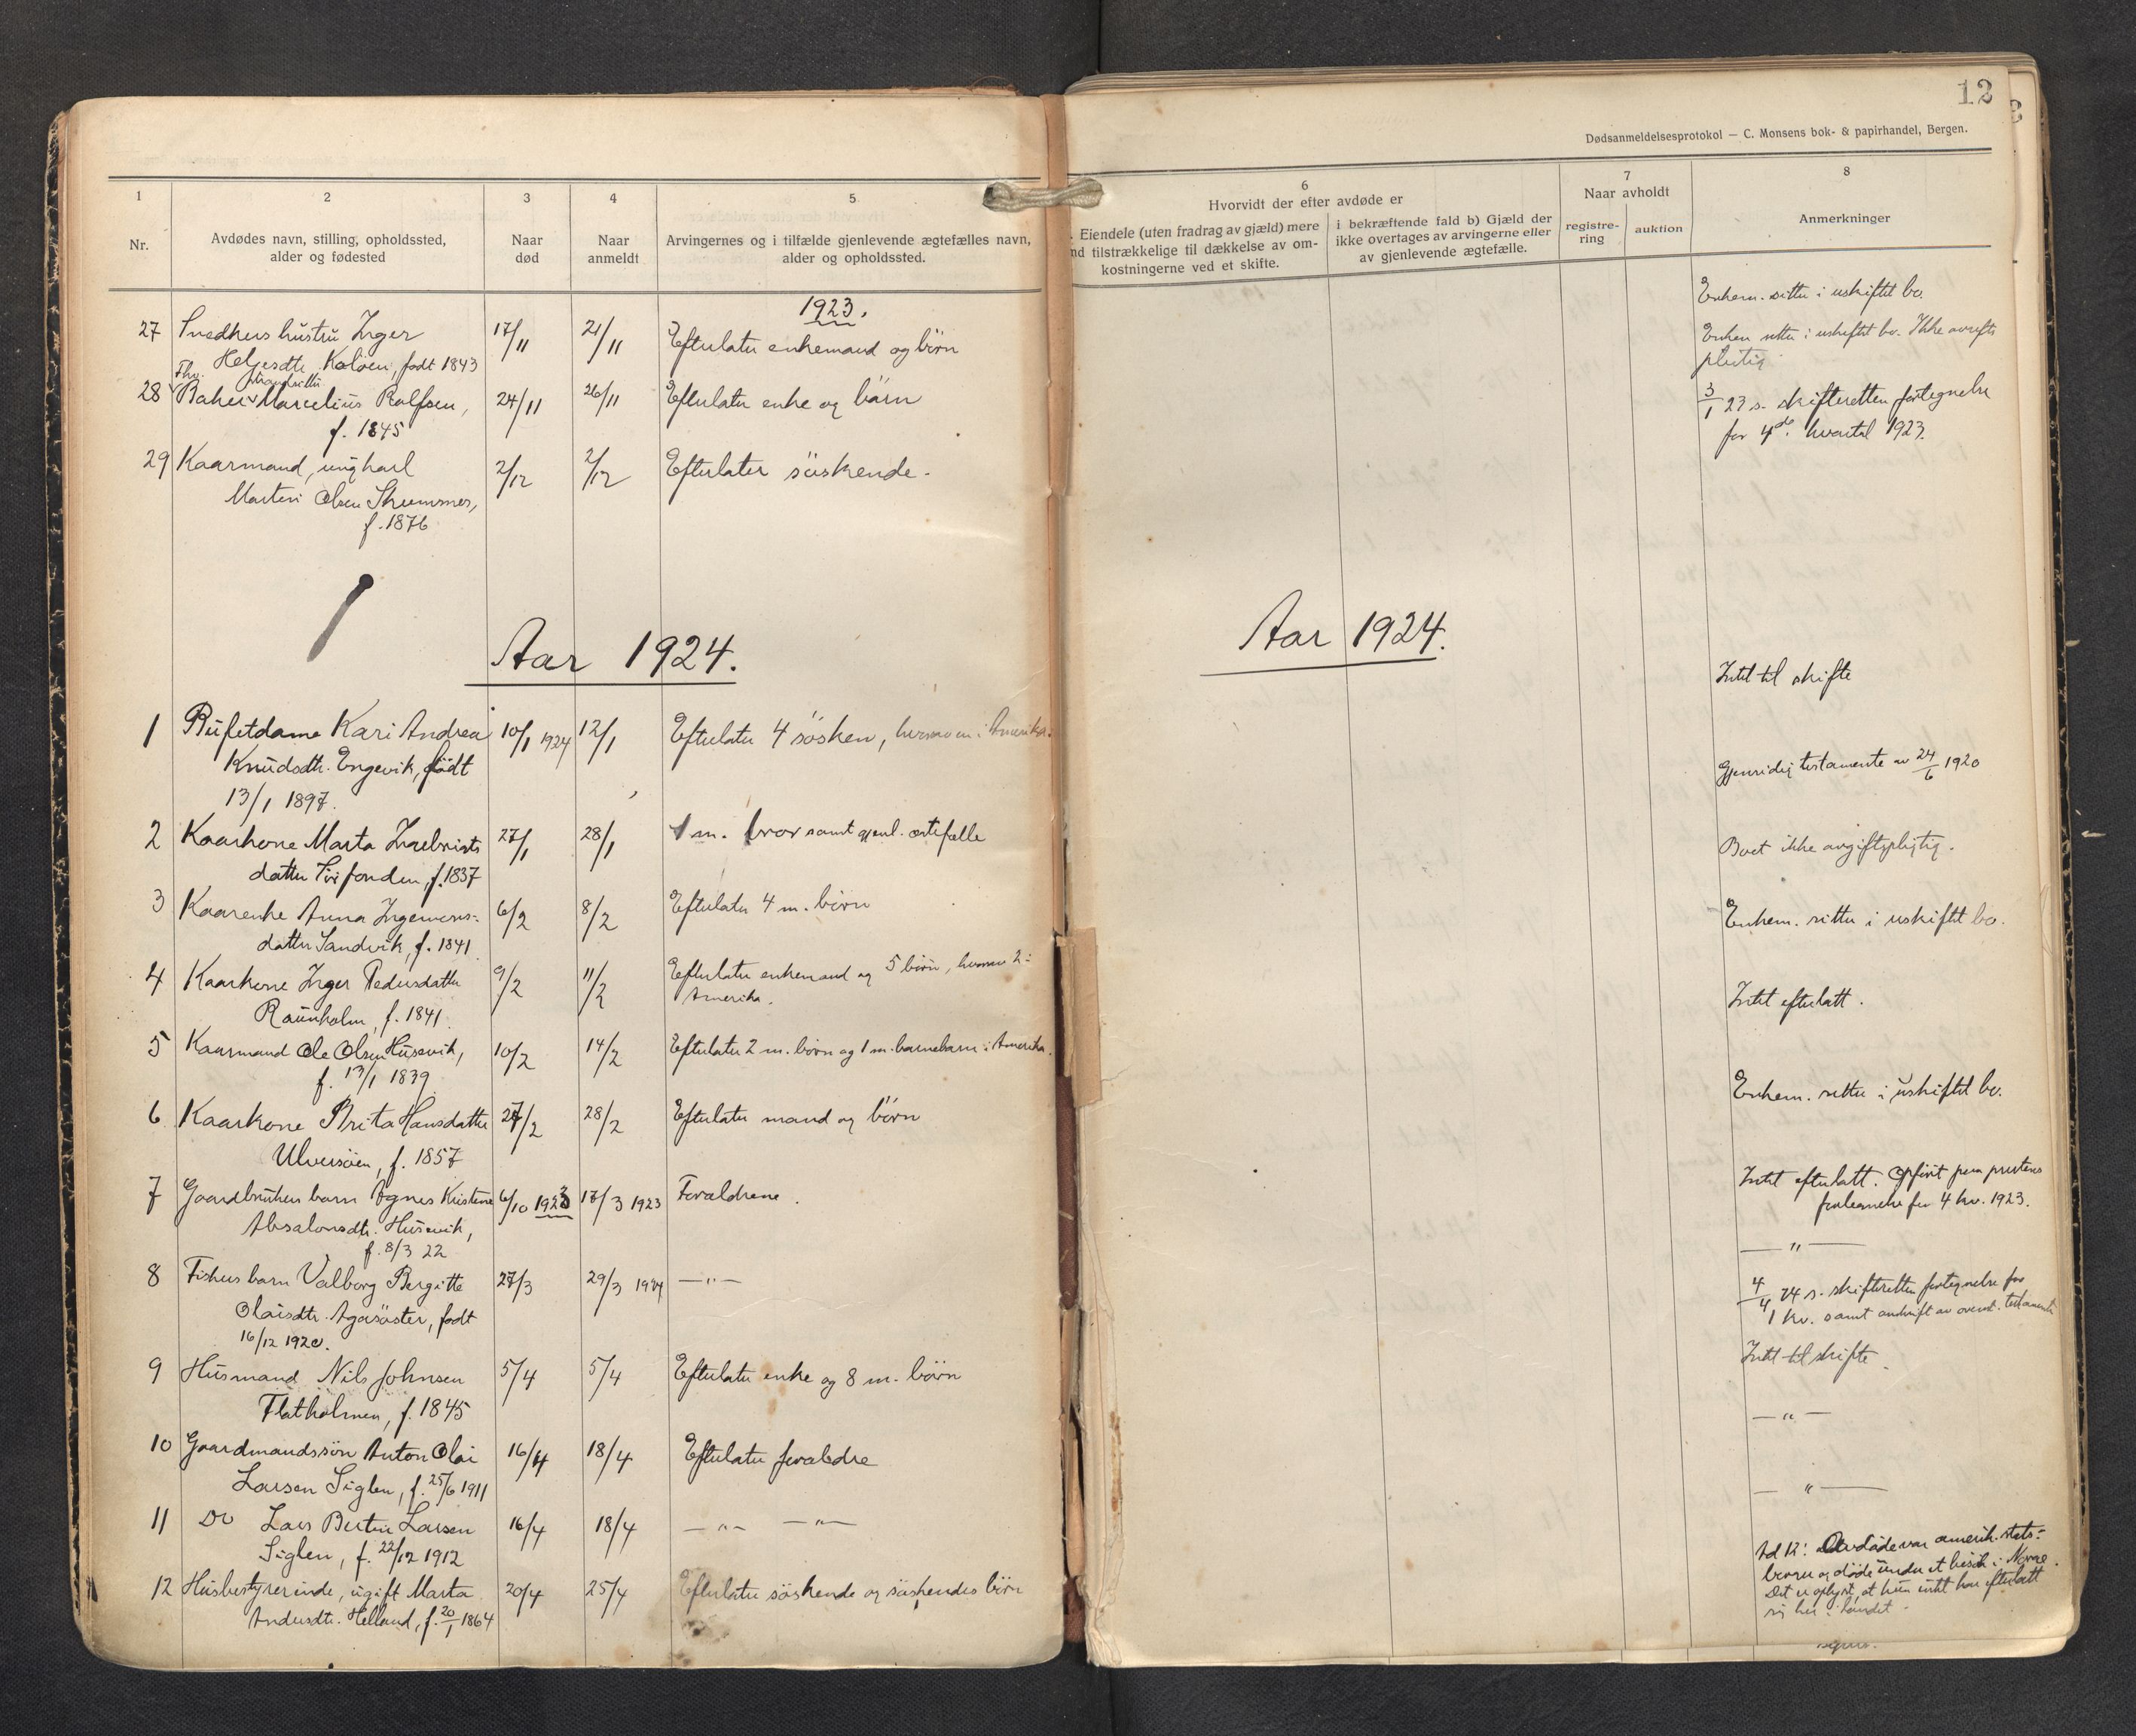 1
2
3
4
5
Nr.
Avdødes navn, stilling, opholdssted,
alder og fødested
Naar
død
Naar
anmeldt
Arvingernes og i tilfælde gjenlevende ægtefælles navn,
alder og opholdssted.
1923.
27 Snedkers hustru Inger 17/11 21/11 Efterlater enkemand og børn
Helgesdtr. Koløen, født 1843
Fhv. strandsitter
28 Baker Marcelius Rolfsen, 24/11 26/11 Efterlater enke og børn
f. 1845
29 Kaarmand, ungkarl 2/12 2/12 Efterlater søskende.
Martin Olsen Skummes,
f. 1876
Aar 1924.
1 Bufetdame Kari Andrea 10/1 1924 12/1 Efterlater 4 søsken, hvorav en i Amerika.
Knudsdtr. Engevik, født
13/1 1897.
2 Kaarkone Marta Ingebrigts 27/1 28/1 1 m. bror samt gjenl. ektefælle
datter f. 1837
3 Kaarenke Anna Ingemans- 6/2 8/2 Efterlater 4 m. børn
datter Sandvik, f. 1841
4 Kaarkone Inger Pedersdatter 9/2 11/2 Efterlater enkemand og 5 børn, hvorav 2 i
Raunholm, f. 1841. Amerika.
5 Kaarmand Ole Olsen Husevik, 10/2 14/2 Efterlater 2 m. børn og 1 m. barnebarn i Amerika.
f. 13/1 1839
6 Kaarkone Brita Hansdatter 27/2 28/2 Efterlater mand og børn
Ulversøen, f. 1857
7 Gaardbrukers barn Agnes Kristine 6/10 1923 17/3 1923 Forældrene.
Absalonsdtr. Husevik,
f. 8/3 22
8 Fiskers barn Valborg Bergitte 27/3 29/3 1924 — " —
Olaisdtr. Agasøster, født
16/12 1920.
9 Husmand Nils Johnsen 5/4 5/4 Efterlater enke og 8 m. børn
Flatholmen, f. 1845
10 Gaardmandssøn Anton Olai 16/4 18/4 Efterlater forældre
Larsen Siglen, f. 25/6 1911
11 Do Lars Bertin Larsen 16/4 18/4 — " — — " —
Siglen, f. 22/12 1912
12 Husbestyrerinde, ugift Marta 20/4 25/4 Efterlater søskende og søskendes børn
Andersdtr. Helland, f. 20/1 1864
12
Dødsanmeldelsesprotokol — C. Monsens bok- & papirhandel, Bergen.
6
Hvorvidt der efter avdøde er
Eiendele (uten fradrag av gjæld) mere
nd tilstrækkelige til dækkelse av om-
kostningerne ved et skifte.
i bekræftende fald b) Gjæld der
ikke overtages av arvingerne eller
av gjenlevende ægtefælle.
7
Naar avholdt
registre-
ring
auktion
8
Anmerkninger
Enkem. sitter i uskiftet bo.
Enken sitter i uskiftet bo. Ikke avgifts
pligtig
3/1 23 s. skifteretten fortegnelse
for 4de kvartal 1923.
Aar 1924.
Intet til skifte
Gjensidig testamente av 24/6 1920
Boet ikke avgiftspligtig.
Enkem. sitter i uskiftet bo.
Intet efterlatt.
Enkem. sitter i uskiftet bo.
Intet efterlatt. Opført paa prestens
fortegnelse for 4 kv. 1923.
— " —
4/4 24 s. skifteretten fortegnelse for
1 kv. samt avskrift av testamente
Intet til skifte.
— " —
— " —
Ad 12: Avdøde var amerik. stats-
borger og døde under et besøk i Norge.
Det er oplyst, at hun intet har efterlatt
sig her i landet.